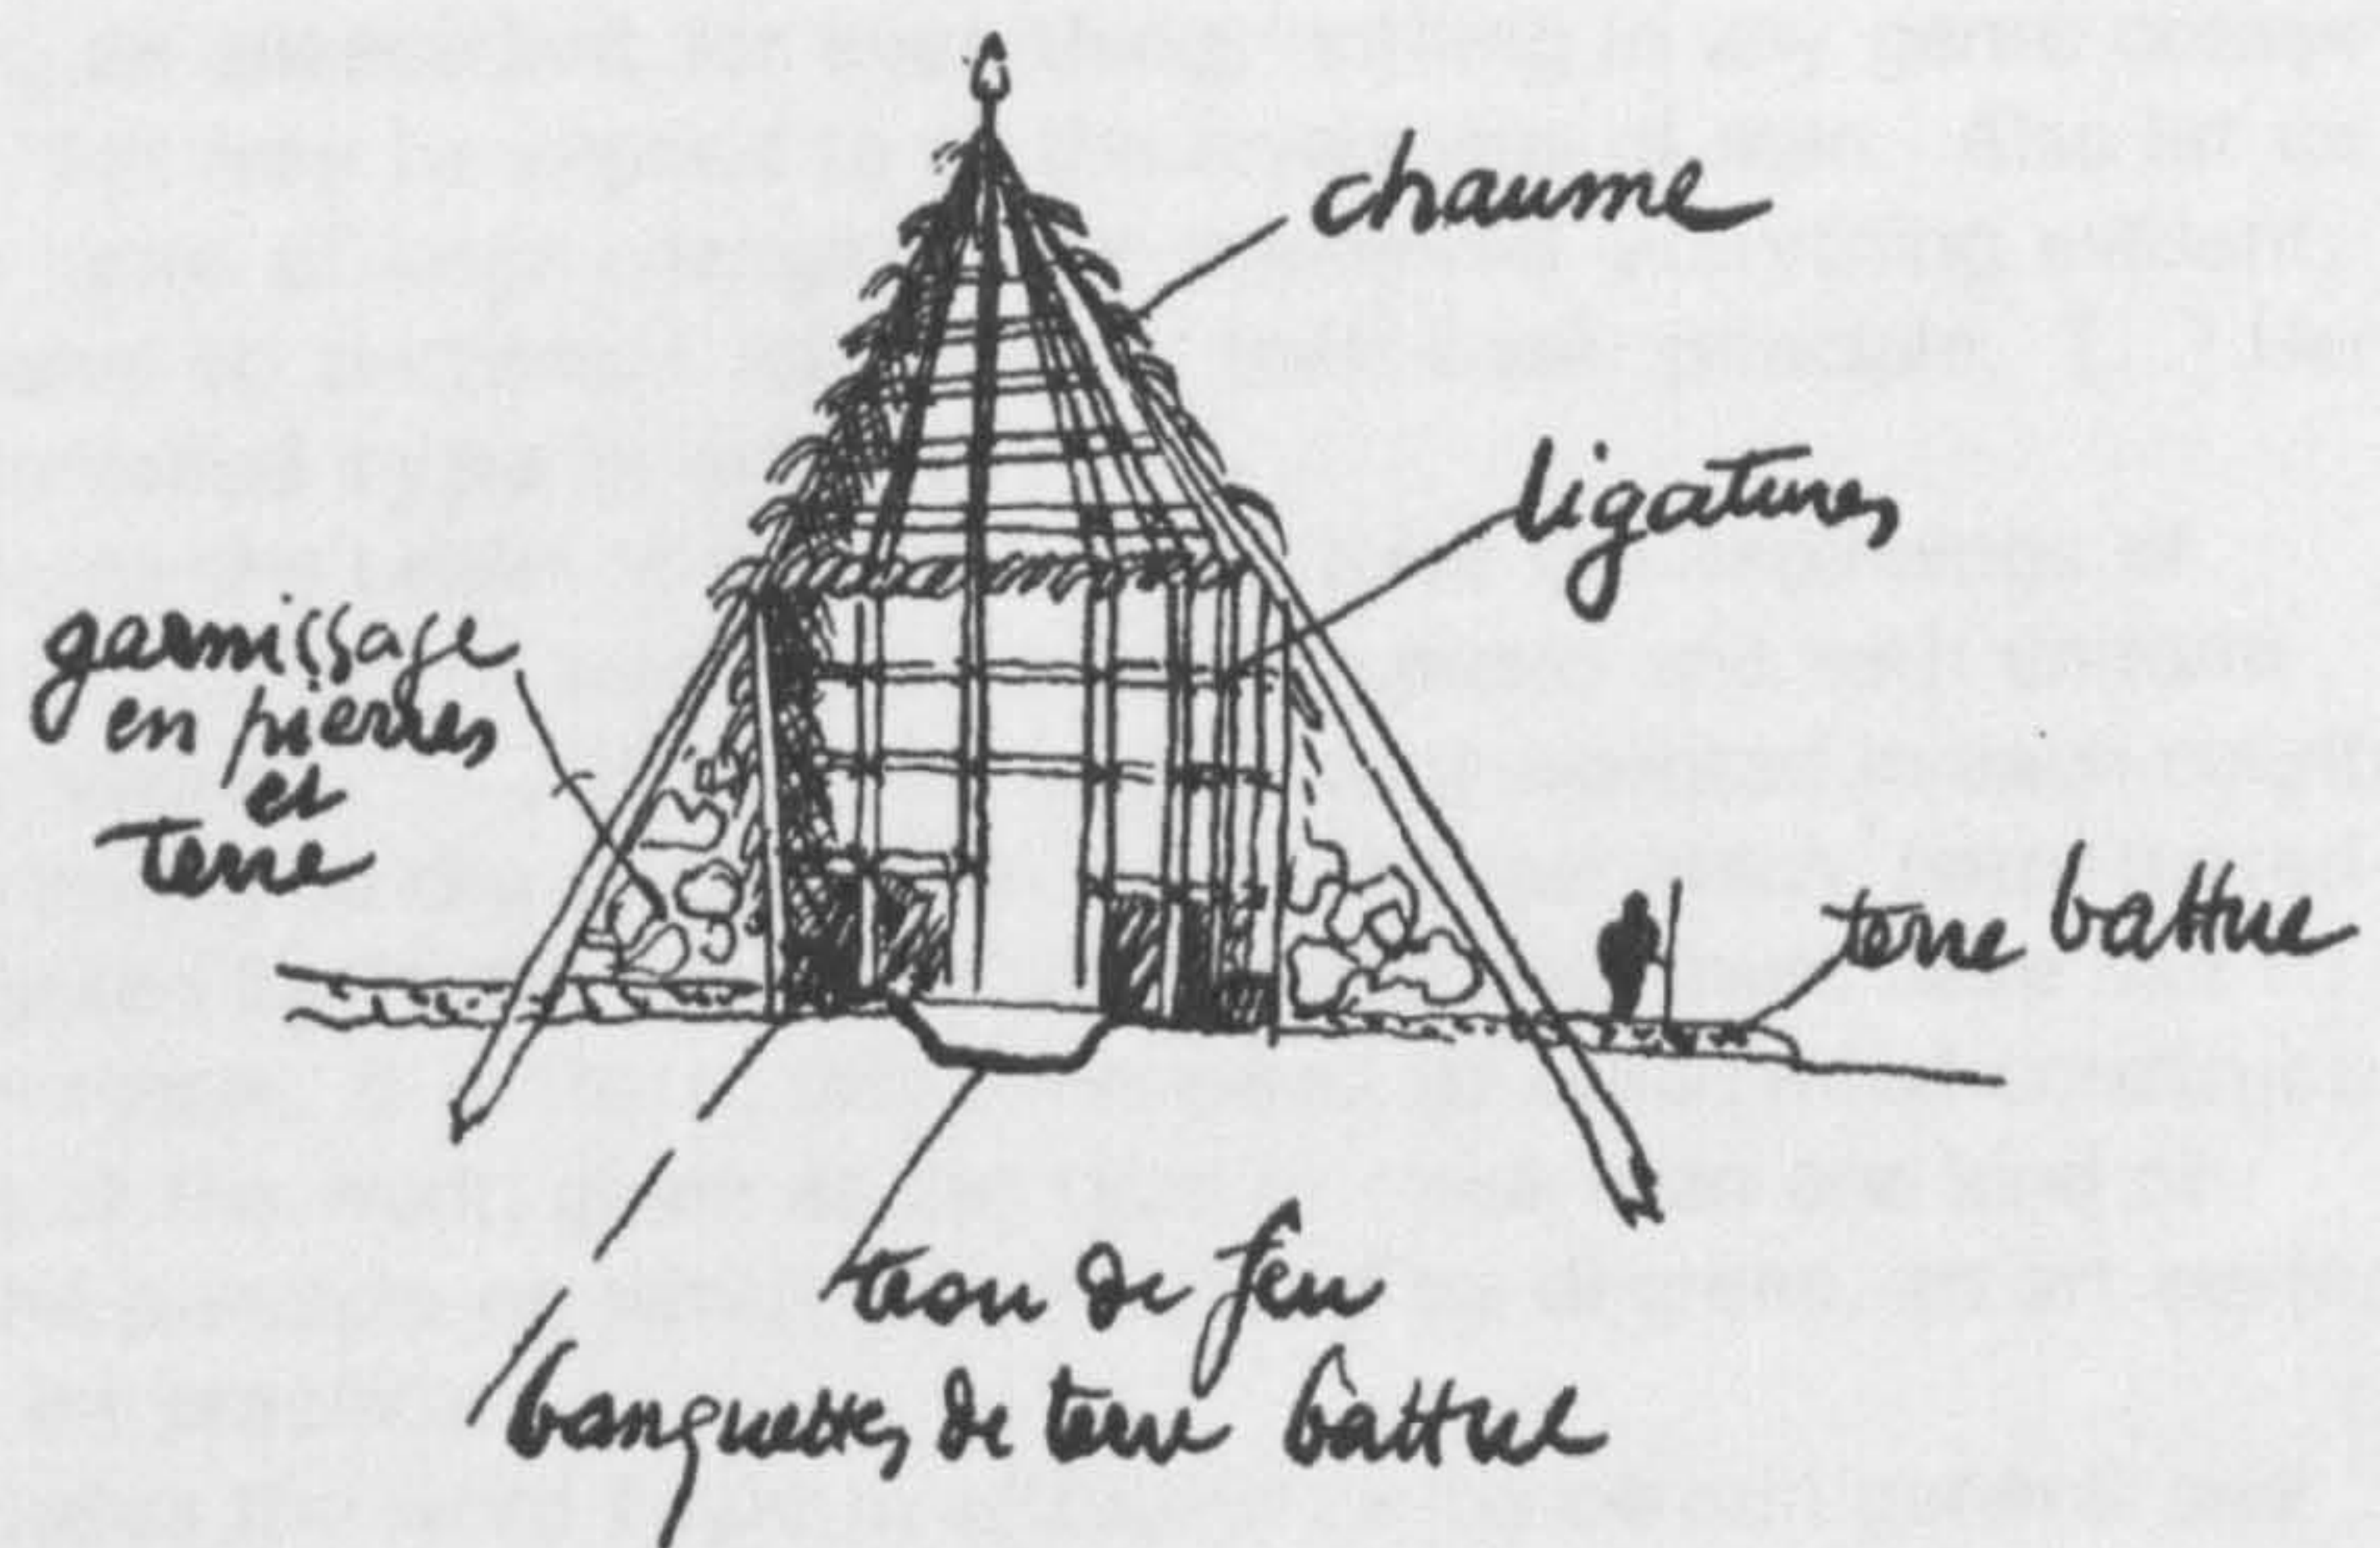 chaume
ligatures
garnissage
en pierres
et
terre
terre battue
trou de feu
banquettes de terre battue